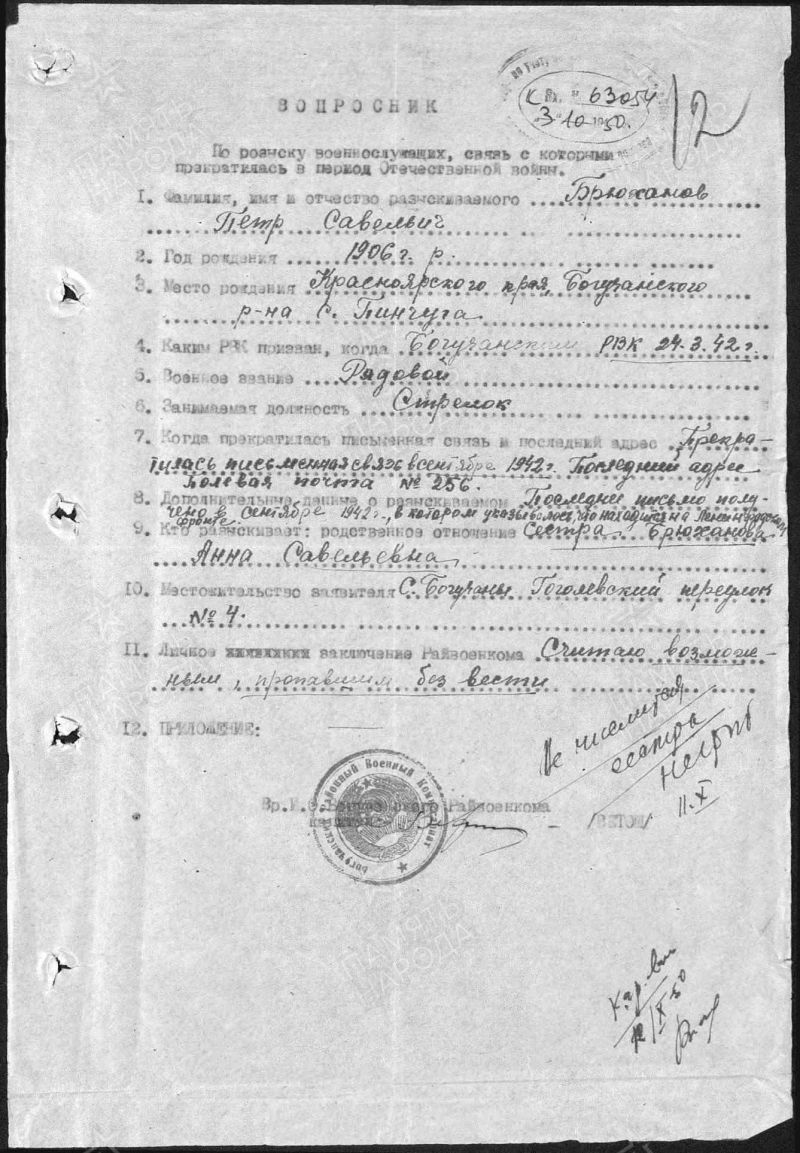 К Вх. № 63054
"3" 10 1950.
12
ВОПРОСНИК
По розыску военнослужащих, связь с которыми
прекратилась в период Отечественной войны.
1. Фамилия, имя и отчество разыскиваемого Брюханов
Пётр Савельич
2. Год рождения 1906 г. р.
3. Место рождения Красноярского края, Богучанского
р-на с. Пинчуга
4. Каким РВК призван, когда Богучанским РВК 24.3.42 г.
5. Военное звание Рядовой
6. Занимаемая должность Стрелок
7. Когда прекратилась письменная связь и последний адрес Прекра-
тилась письменная связь в сентябре 1942 г. Последний адрес
Полевая почта № 256.
8. Дополнительные данные о разыскиваемом Последнее письмо полу-
чено в сентябре 1942 г., в котором указывалось, что находится на Ленинградском
фронте.
9. Кто разыскивает: родственное отношение Сестра Брюханова
Анна Савельевна
10. Местожительство заявителя с. Богучаны Гоголевский переулок
№ 4.
11. Личное заключение Райвоенкома Считаю возмож-
ным, пропавшим без вести
12. ПРИЛОЖЕНИЕ:
Не числится
сестра
11.X
Богучанский Районный Военный Комиссариат
Вр.И.О. Богучанского Райвоенкома
капитан /ВЕТОШ/
12/X 50
ПАМЯТЬ
НАРОДА